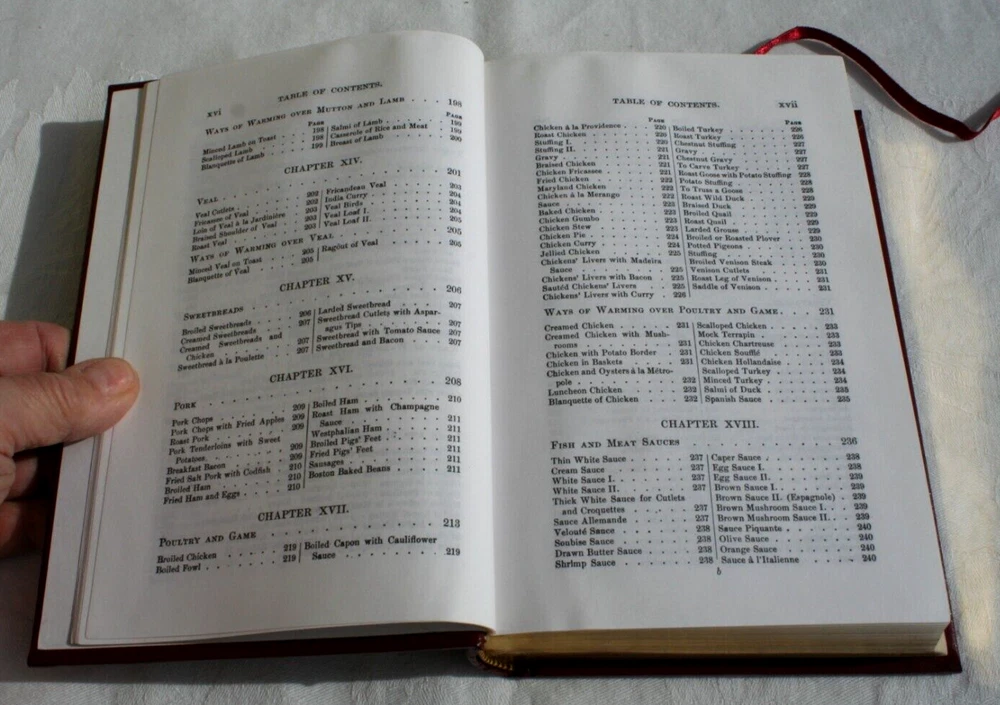 xvi TABLE OF CONTENTS.
Ways of Warming over Mutton and Lamb . . . 198
PAGE
Minced Lamb on Toast . . 198
Scalloped Lamb . . . 198
Blanquette of Lamb . . . 199
PAGE
Salmi of Lamb . . . 199
Casserole of Rice and Meat 199
Breast of Lamb . . . 200
CHAPTER XIV.
Veal . . . 201
Veal Cutlets . . . 202
Fricassee of Veal . . . 202
Loin of Veal à la Jardinière 203
Braised Shoulder of Veal . 203
Roast Veal
Fricandeau Veal . . . 203
India Curry . . . 204
Veal Birds . . . 204
Veal Loaf I. . . . 204
Veal Loaf II. . . . 205
Ways of Warming over Veal . . . 205
Minced Veal on Toast . . 205
Blanquette of Veal . . . 205
Ragout of Veal . . . 205
CHAPTER XV.
Sweetbreads . . . 206
Broiled Sweetbreads . . . 206
Creamed Sweetbreads . . . 207
Creamed Sweetbreads and
Chicken . . . 207
Sweetbread à la Poulette . 207
Larded Sweetbread . . . 207
Sweetbread Cutlets with Aspar-
agus Tips . . . 207
Sweetbread with Tomato Sauce 207
Sweetbread and Bacon . . 207
CHAPTER XVI.
Pork . . . 208
Pork Chops . . . 209
Pork Chops with Fried Apples 209
Roast Pork . . . 209
Pork Tenderloins with Sweet
Potatoes . . . 209
Breakfast Bacon . . . 209
Fried Salt Pork with Codfish . 210
Broiled Ham . . . 210
Fried Ham and Eggs . . . 210
Boiled Ham . . . 210
Roast Ham with Champagne
Sauce . . . 211
Westphalian Ham . . . 211
Broiled Pigs' Feet . . . 211
Fried Pigs' Feet . . . 211
Sausages . . . 211
Boston Baked Beans . . . 211
CHAPTER XVII.
Poultry and Game . . . 213
Broiled Chicken . . . 219
Boiled Fowl . . . 219
Boiled Capon with Cauliflower
Sauce . . . 219
TABLE OF CONTENTS. xvii
PAGE
Chicken à la Providence . . 220
Roast Chicken . . . 220
Stuffing I. . . . 220
Stuffing II. . . . 221
Gravy . . . 221
Braised Chicken . . . 221
Chicken Fricassee . . . 221
Fried Chicken . . . 222
Maryland Chicken . . . 222
Chicken à la Merango . . 222
Sauce . . . 222
Baked Chicken . . . 222
Chicken Gumbo . . . 223
Chicken Stew . . . 223
Chicken Pie . . . 224
Chicken Curry . . . 224
Jellied Chicken . . . 225
Chickens' Livers with Madeira
Sauce . . . 225
Chickens' Livers with Bacon . 225
Sautéd Chickens' Livers . . 225
Chickens' Livers with Curry . 226
PAGE
Boiled Turkey . . . 226
Roast Turkey . . . 226
Chestnut Stuffing . . . 227
Gravy . . . 227
Chestnut Gravy . . . 227
To Carve Turkey . . . 227
Roast Goose with Potato Stuffing 228
Potato Stuffing . . . 228
To Truss a Goose . . . 228
Roast Wild Duck . . . 228
Braised Duck . . . 229
Broiled Quail . . . 229
Roast Quail . . . 229
Larded Grouse . . . 229
Broiled or Roasted Plover . 230
Potted Pigeons . . . 230
Stuffing . . . 230
Broiled Venison Steak . . 230
Venison Cutlets . . . 231
Roast Leg of Venison . . 231
Saddle of Venison . . . 231
Ways of Warming over Poultry and Game . . . 231
Creamed Chicken . . . 231
Creamed Chicken with Mush-
rooms . . . 231
Chicken with Potato Border . 231
Chicken in Baskets . . . 231
Chicken and Oysters à la Métro-
pole . . . 232
Luncheon Chicken . . . 232
Blanquette of Chicken . . 232
Scalloped Chicken . . . 233
Mock Terrapin . . . 233
Chicken Chartreuse . . . 233
Chicken Soufflé . . . 233
Chicken Hollandaise . . . 234
Scalloped Turkey . . . 234
Minced Turkey . . . 234
Salmi of Duck . . . 235
Spanish Sauce . . . 235
CHAPTER XVIII.
Fish and Meat Sauces . . . 236
Thin White Sauce . . . 237
Cream Sauce . . . 237
White Sauce I. . . . 237
White Sauce II. . . . 237
Thick White Sauce for Cutlets
and Croquettes . . . 237
Sauce Allemande . . . 237
Velouté Sauce . . . 238
Soubise Sauce . . . 238
Drawn Butter Sauce . . . 238
Shrimp Sauce . . . 238
Caper Sauce . . . 238
Egg Sauce I. . . . 238
Egg Sauce II. . . . 239
Brown Sauce I. . . . 239
Brown Sauce II. (Espagnole) . 239
Brown Mushroom Sauce I. . . 239
Brown Mushroom Sauce II. . . 239
Sauce Piquante . . . 240
Olive Sauce . . . 240
Orange Sauce . . . 240
Sauce à l'Italienne . . . 240
b